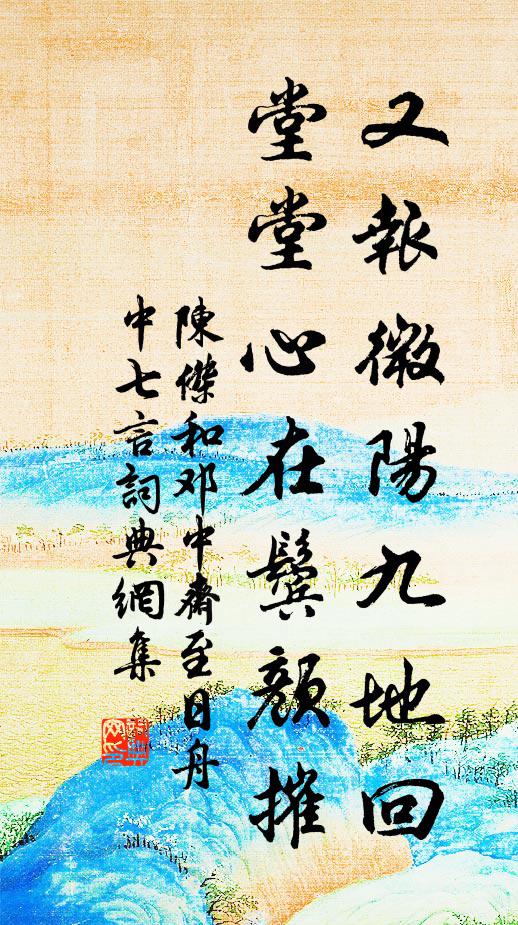 又報微陽九地回
堂堂心在鬓顏摧
陳傑和邓中齋至日舟
中七言詞典網集